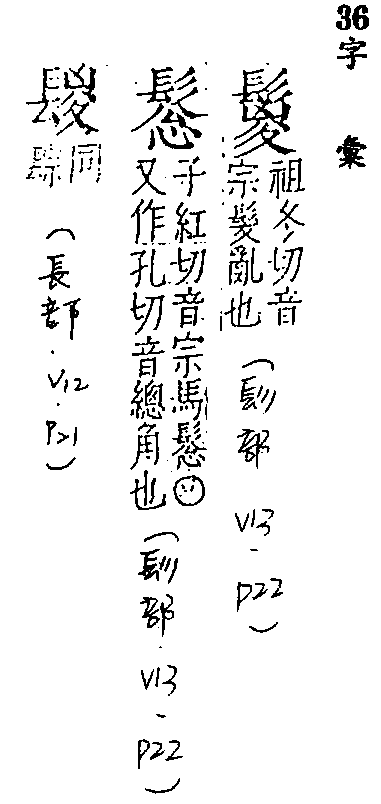 36字彙
鬉
祖冬切音
宗髮亂也
(髟部 V13-P22)
子紅切音宗馬
又作孔切音總角也
(髟部.V13-P22)
同
(長部.V12.P21)